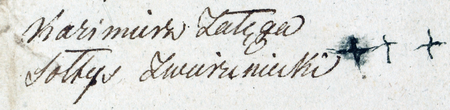 Kazimierz Załęga
Sołtys Zwierzniecki + + +